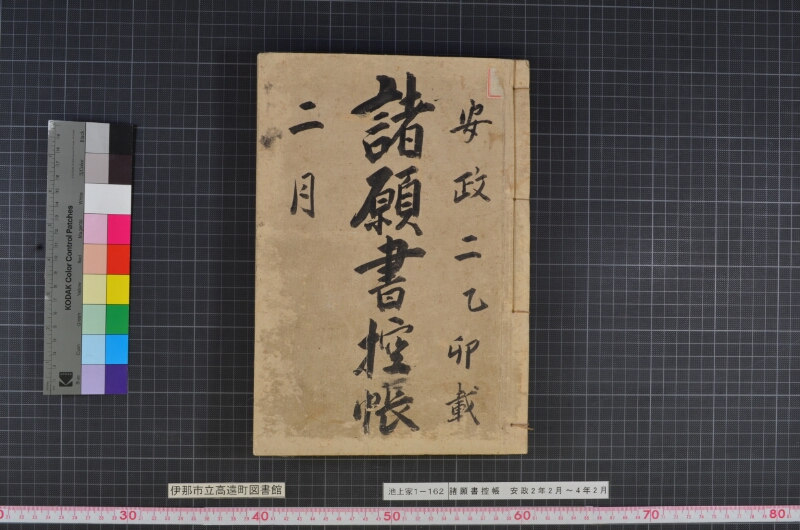 安政二乙卯載
諸願書控帳
二月
KODAK Color Control Patches
KODAK
伊那市立高遠町図書館
池上家1-162 諸願書控帳 安政2年2月～4年2月
30 40 50 60 70 80